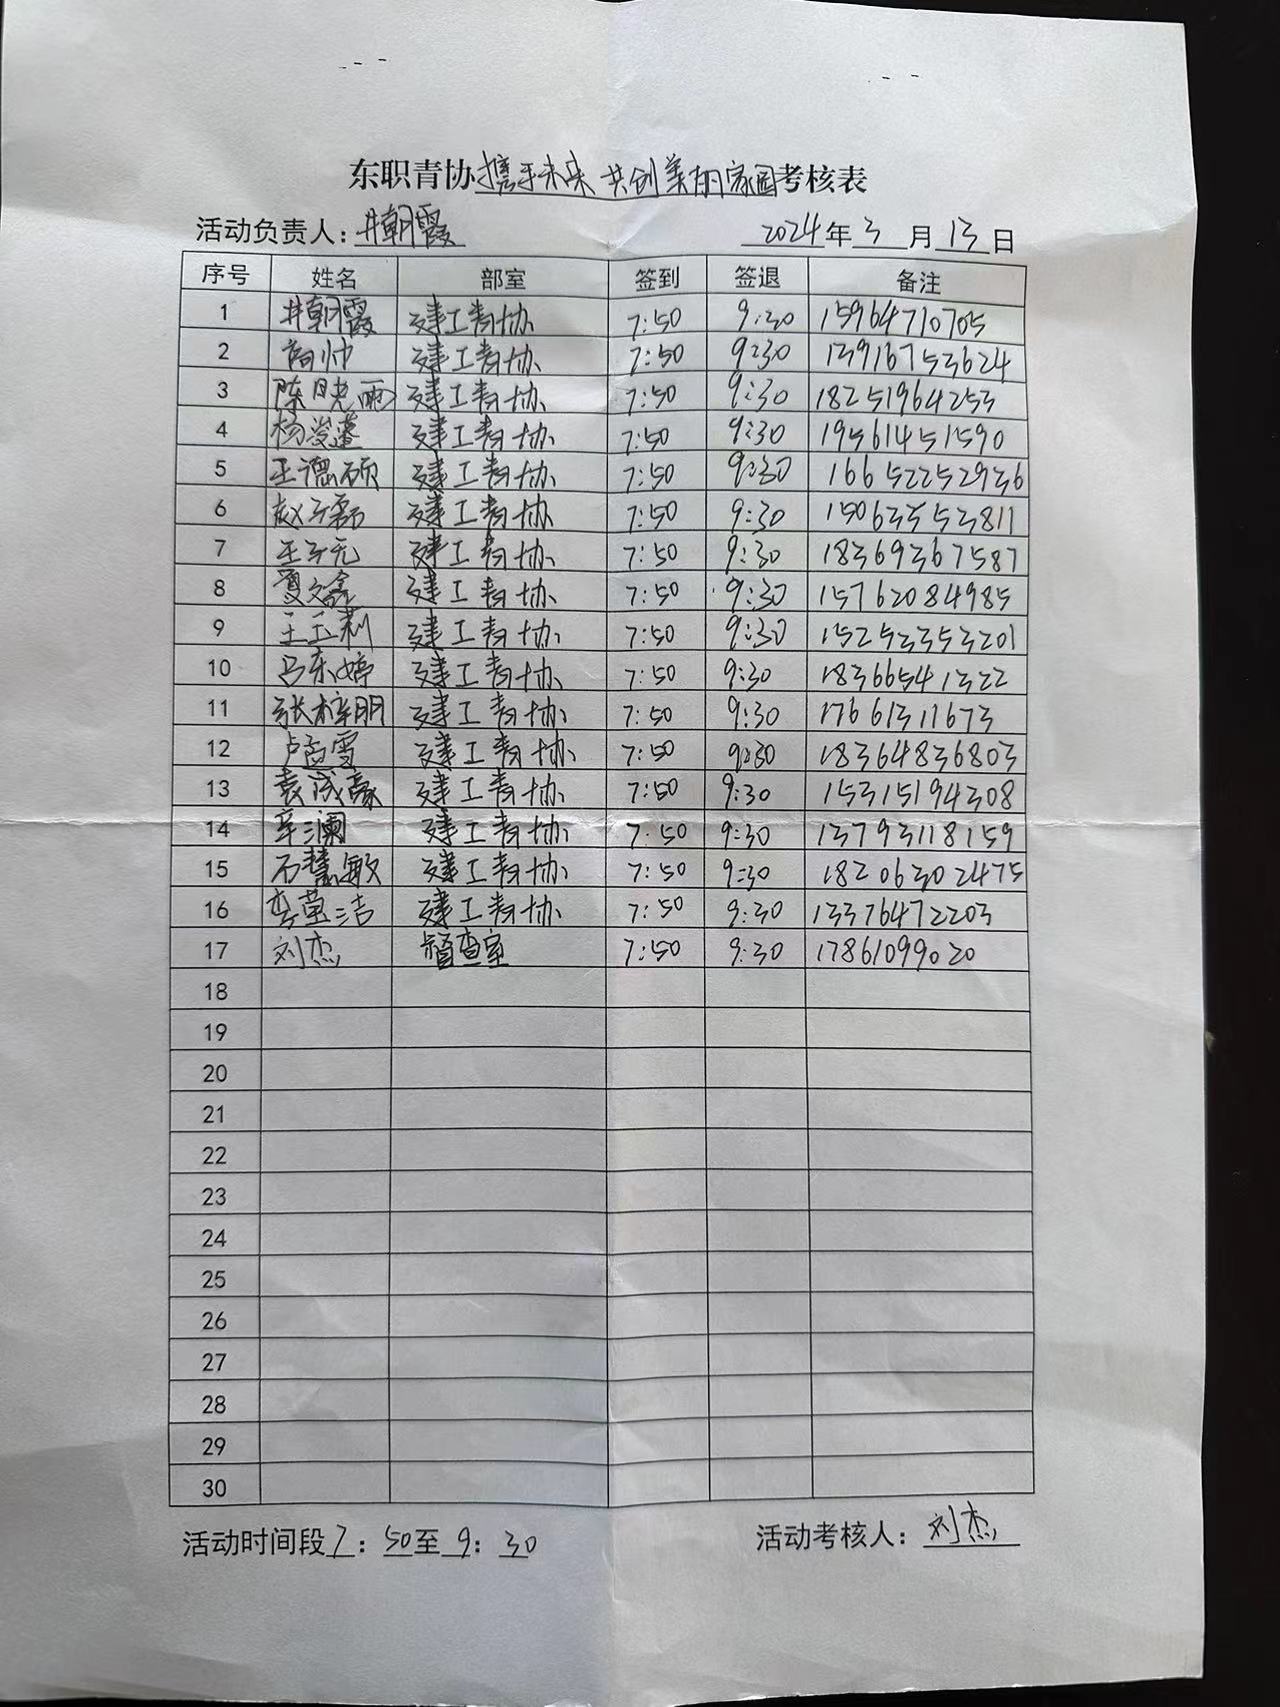 东职青协携手未来 共创美丽家园考核表
活动负责人：井朝霞 2024年3月13日
序号 姓名 部室 签到 签退 备注
1 井朝霞 建工青协 7:50 9:30 15964710705
2 高帅 建工青协 7:50 9:30 13916753624
3 陈晓雨 建工青协 7:50 9:30 18251964253
4 杨浚蓬 建工青协 7:50 9:30 19561451590
5 王德硕 建工青协 7:50 9:30 16652252936
6 赵子磊 建工青协 7:50 9:30 15063553811
7 王子元 建工青协 7:50 9:30 18369367587
8 夏文鑫 建工青协 7:50 9:30 15762084985
9 王玉莉 建工青协 7:50 9:30 15253353201
10 吕东婷 建工青协 7:50 9:30 18366541322
11 张梓明 建工青协 7:50 9:30 17661311673
12 卢孟雪 建工青协 7:50 9:30 18364836803
13 袁成豪 建工青协 7:50 9:30 15315194308
14 辛澜 建工青协 7:50 9:30 13793118159
15 石慧敏 建工青协 7:50 9:30 18206302475
16 建工青协 7:50 9:30 13376472203
17 刘杰 督查室 7:50 9:30 17861099020
18
19
20
21
22
23
24
25
26
27
28
29
30
活动时间段7：50至9：30 活动考核人：刘杰